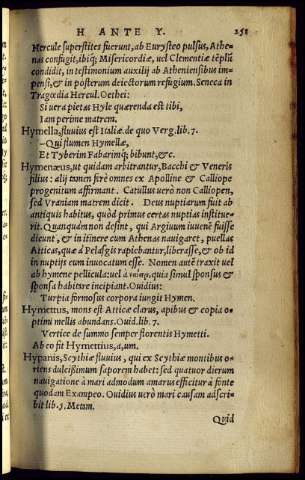 H ANTE Y. 251
Hercule superstites fuerunt, ab Eurysteo pulsus, Athe-
nas confugit, ibiq; Misericordiæ, uel Clementiæ tẽplũ
condidit, in testimonium auxilij ab Atheniensibus im-
pensi, & in posterum deiectorum refugium. Seneca in
Tragœdia Hercul. Oethei:
Si uera pietas Hyle quærenda est tibi,
Iam perime matrem.
Hymella, fluuius est Italiæ. de quo Verg. lib. 7.
–Qui flumen Hymellæ,
Et Tyberim Fabarimq; bibunt, &c.
Hymenæus, ut quidam arbitrantur, Bacchi & Veneris
filius: alij tamen ferè omnes ex Apolline & Calliope
progenitum affirmant. Catullus uerò non Calliopen,
sed Vraniam matrem dicit. Deus nuptiarum fuit ab
antiquis habitus, quòd primus certas nuptias institue-
rit. Quanquàm non desint, qui Argiuum iuuenē fuisse
dicunt, & in itinere cum Athenas nauigaret, puellas
Atticas, quæ à Pelasgis rapiebantur, liberasse, & ob id
in nuptijs eum inuocatum esse. Nomen autē traxit uel
ab hymene pellicula: uel à quia simul sponsus &
sponsa habitare incipiant. Ouidius:
Turpia formosus corpora iungit Hymen.
Hymettus, mons est Atticæ clarus, apibus & copia o-
ptimi mellis abundans. Ouid. lib. 7.
Vertice de summo semper florentis Hymetti.
Ab eo fit Hymettius, a, um.
Hypanis, Scythiæ fluuius, qui ex Scythiæ montibus o-
riens dulcissimum saporem habet: sed quatuor dierum
nauigatione à mari admodum amarus efficitur à fonte
quodam Exanpeo. Ouidius uerò mari causam adscri-
bit lib. 5. Metam.
Quid